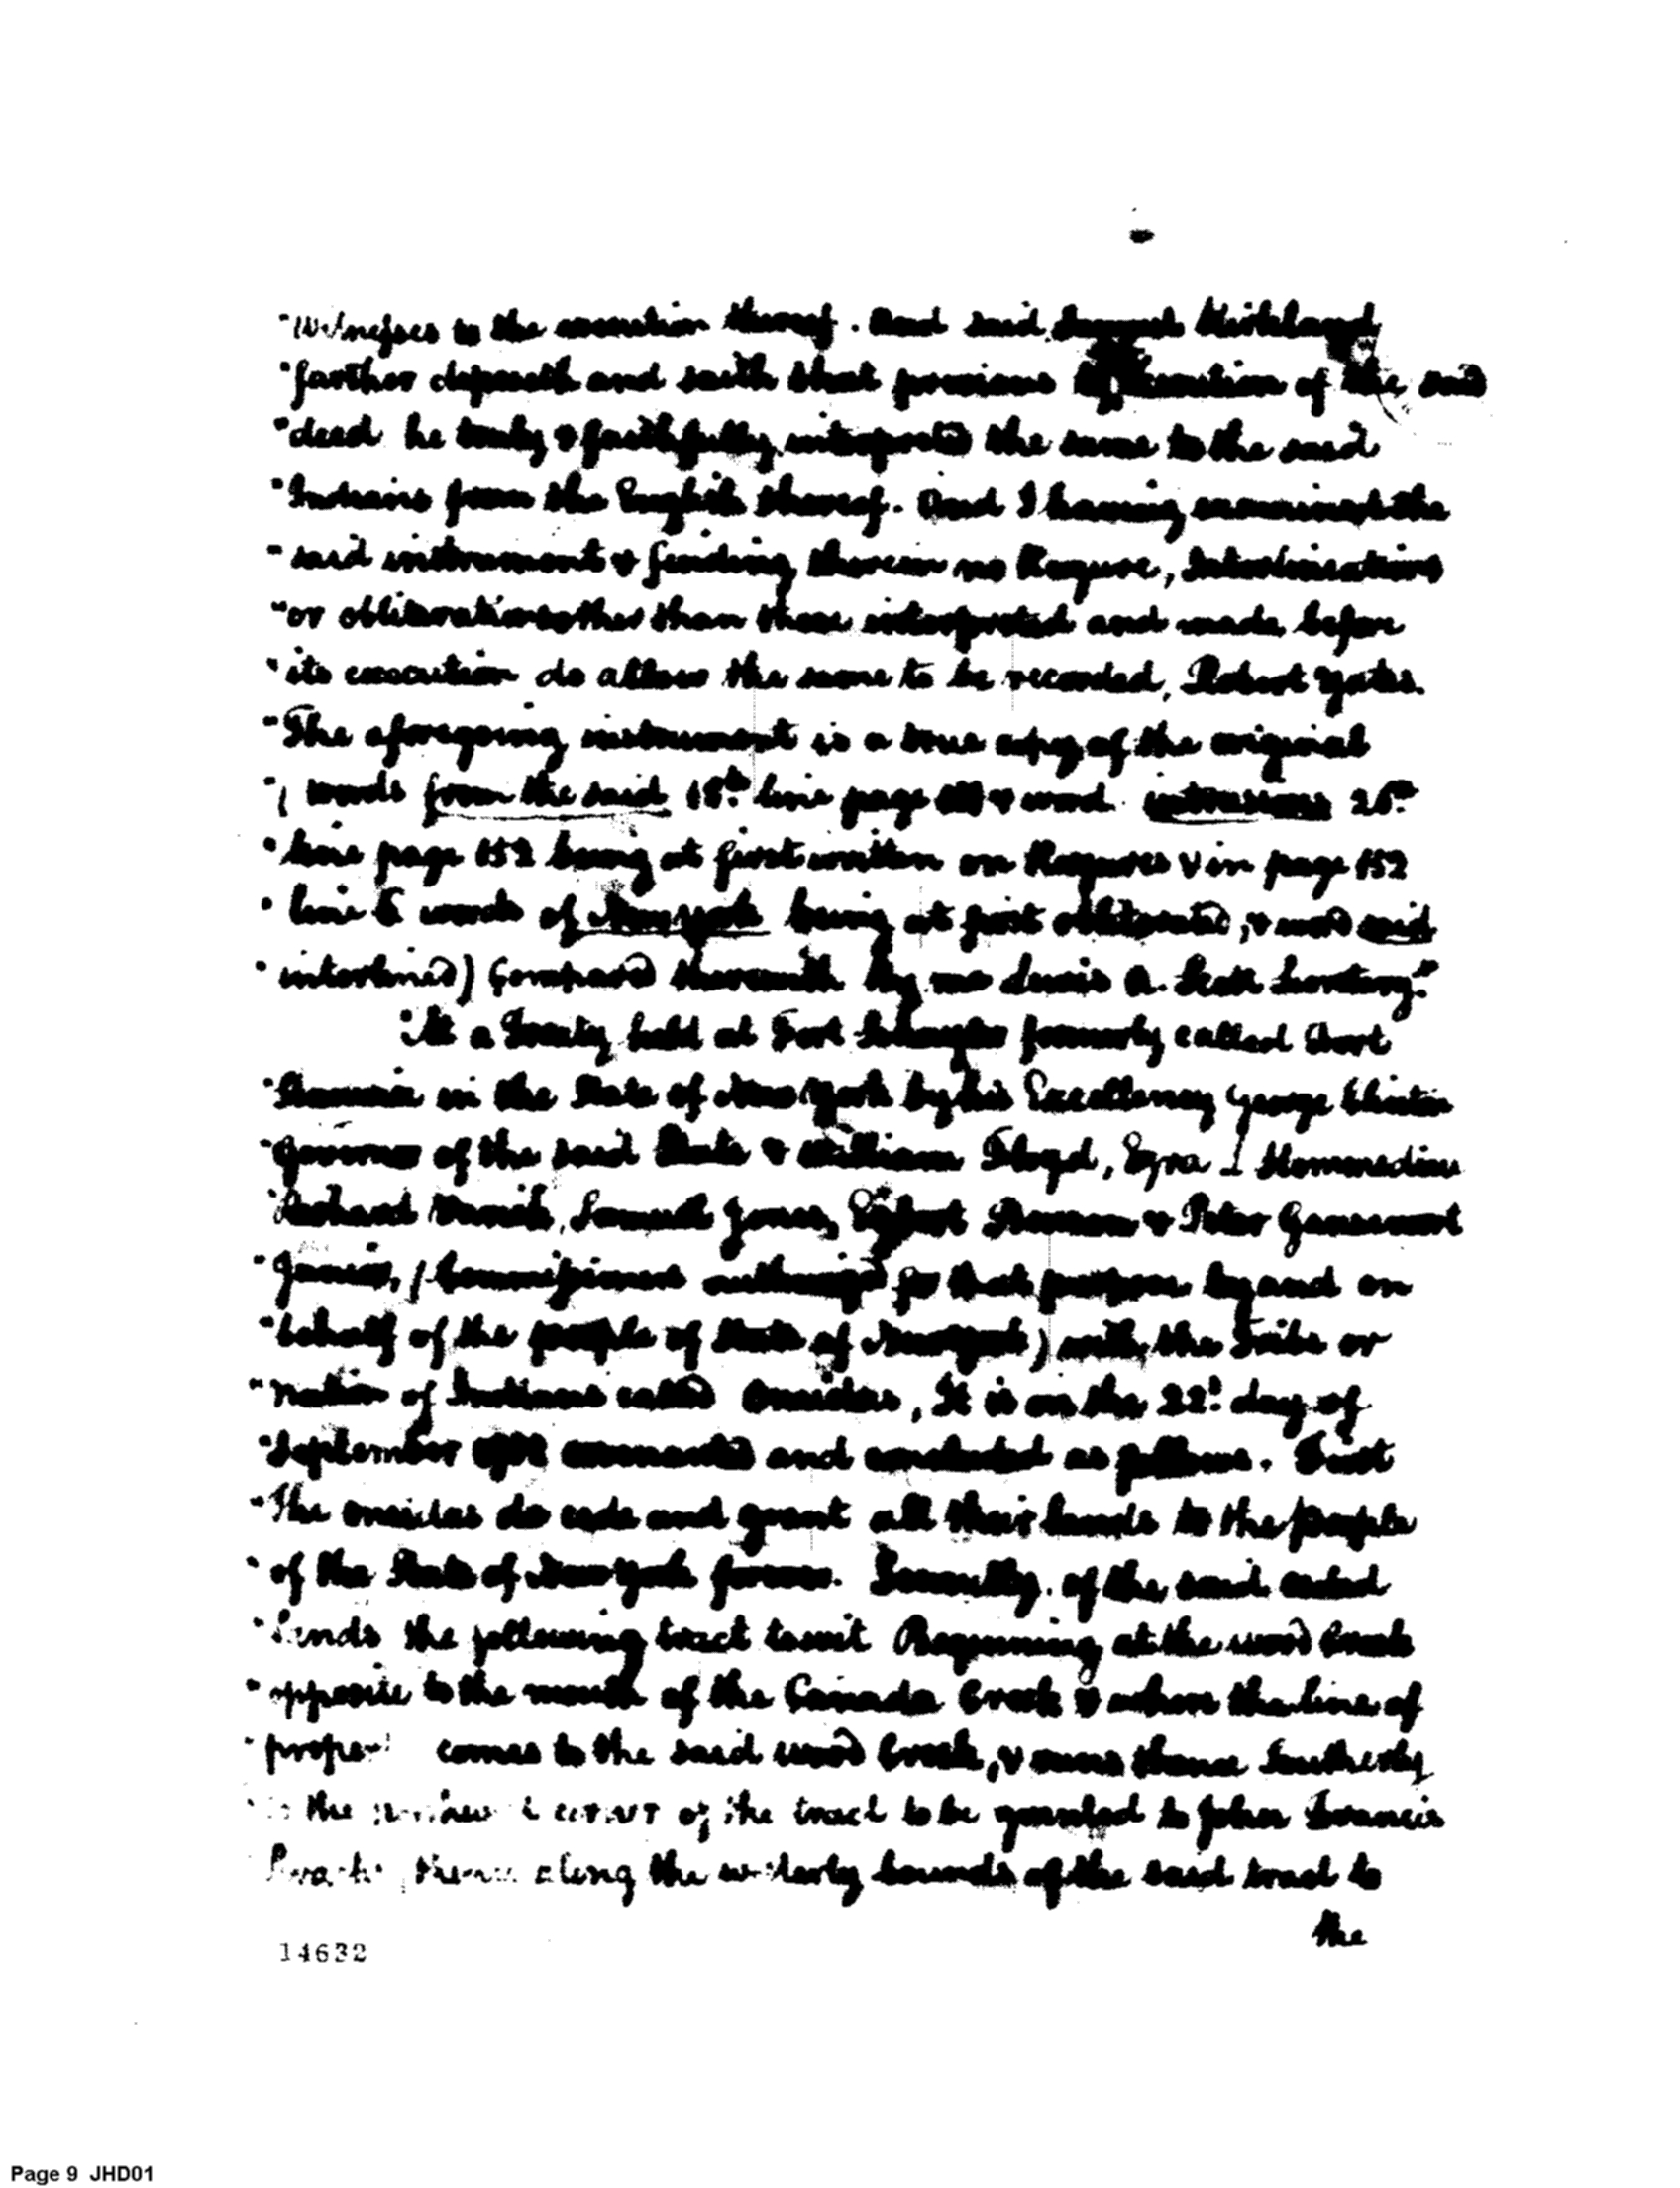 "Witnesses to the execution thereof. And said Samuel Kirkland
"farther deposeth and saith that previous execution of the said
"deed he truly & faithfully interpreted the same to the said
"Indians from the English thereof. And I having examined the
"said instrument & finding therein no Razure, Interlineations
"or obliterations other than those interpreted and made before
"its execution do allow the same to be recorded, Robert Yates.
"The aforegoing instrument is a true copy of the original
"( words from the said 18th line page & word 25th
"line page 152 being at first written on Razures & in page 152
"line 6 words of New York being at first obliterated, & word said
"interlined) Compared therewith by me Lewis A. Scott Secretary."
"At a Treaty held at Fort Schuyler formerly called Fort
"Stanwix in the State of New York by his Excellency George Clinton
"Governor of the said State & William Floyd, Ezra L Hommedieu
"Richard Varick, Samuel Jones, Egbert Benson & Peter Gansevoort
"Junior, (Commissioners authorized for that purpose by and on
"behalf of the people of State of New York) with the Tribe or
"nation of Indians called Oneidas, It is on the 22d day of
"September and concluded as follows. First
"The oneidas do cede and grant all their lands to the people
"of the State of New York forever. Secondly. of the said ceded
"Lands the following tract towit Beginning at the wood Creek
"opposite to the mouth of the Canada Creek & where the line of
"proper comes to the said wood Creek, & runs thence Southerly
the corner of the tract to be granted to John Francis
along the westerly bounds of the said tract to
the
14632
Page 9 JHD01